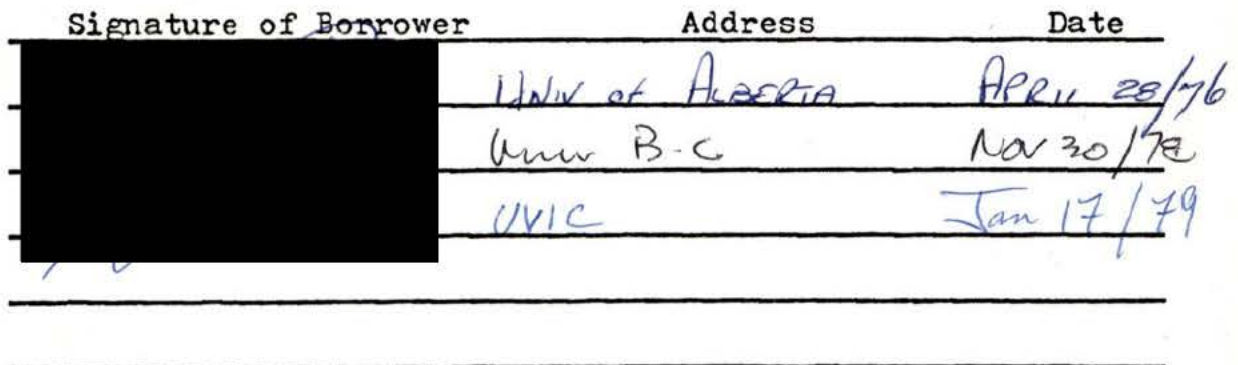 Signature of Borrower Address Date
Univ of ALBERTA APRIL 28/76
Univ B.C Nov 30/78
UVIC Jan 17/79